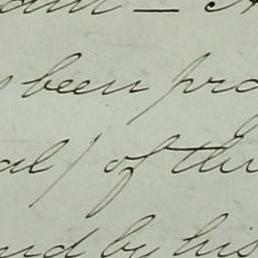 been pro
al) of the
and by his